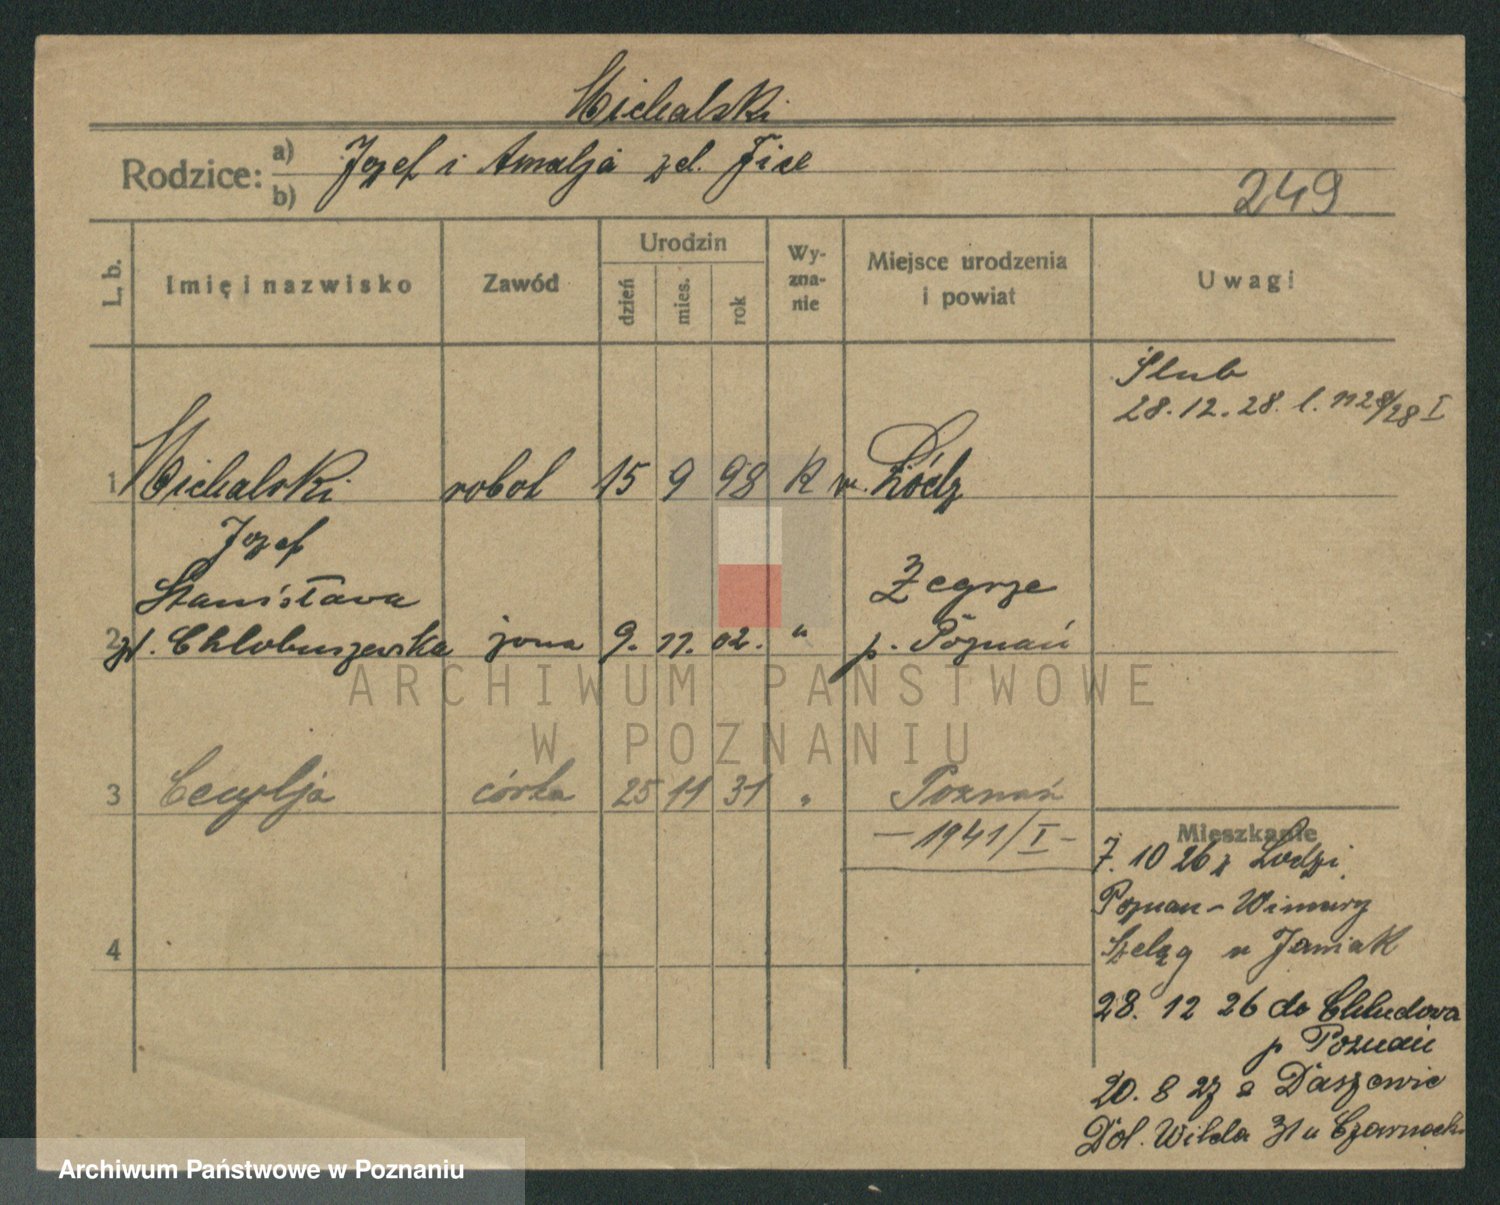 Michalski
Rodzice: a) Józef i Amalja zd. Fice
b)
249
L. b.
Imię i nazwisko
Zawód
Urodzin
dzień
mies.
rok
Wy-
zna-
nie
Miejsce urodzenia
i powiat
Uwagi
Slub
28.12.28. l. 1128/28 I
1 Michalski robot 15 9 98 K m. Łódz
Jozef
Stanisława Zegrze
2 zd. Chłobuszewska zona 9. 11. 02. " p. Poznań
ARCHIWUM PAŃSTWOWE
W POZNANIU
3 Cecylja córka 25 11 31 " Poznań
— 1941/I —
Mieszkanie
7. 10 26 z Lodzi
Poznan - Winiary
Szeląg u Janiak
4
28. 12 26 do Chludowa
p Poznań
20. 8 27 z Daszewic
Dol. Wilda 31 u
Archiwum Państwowe w Poznaniu